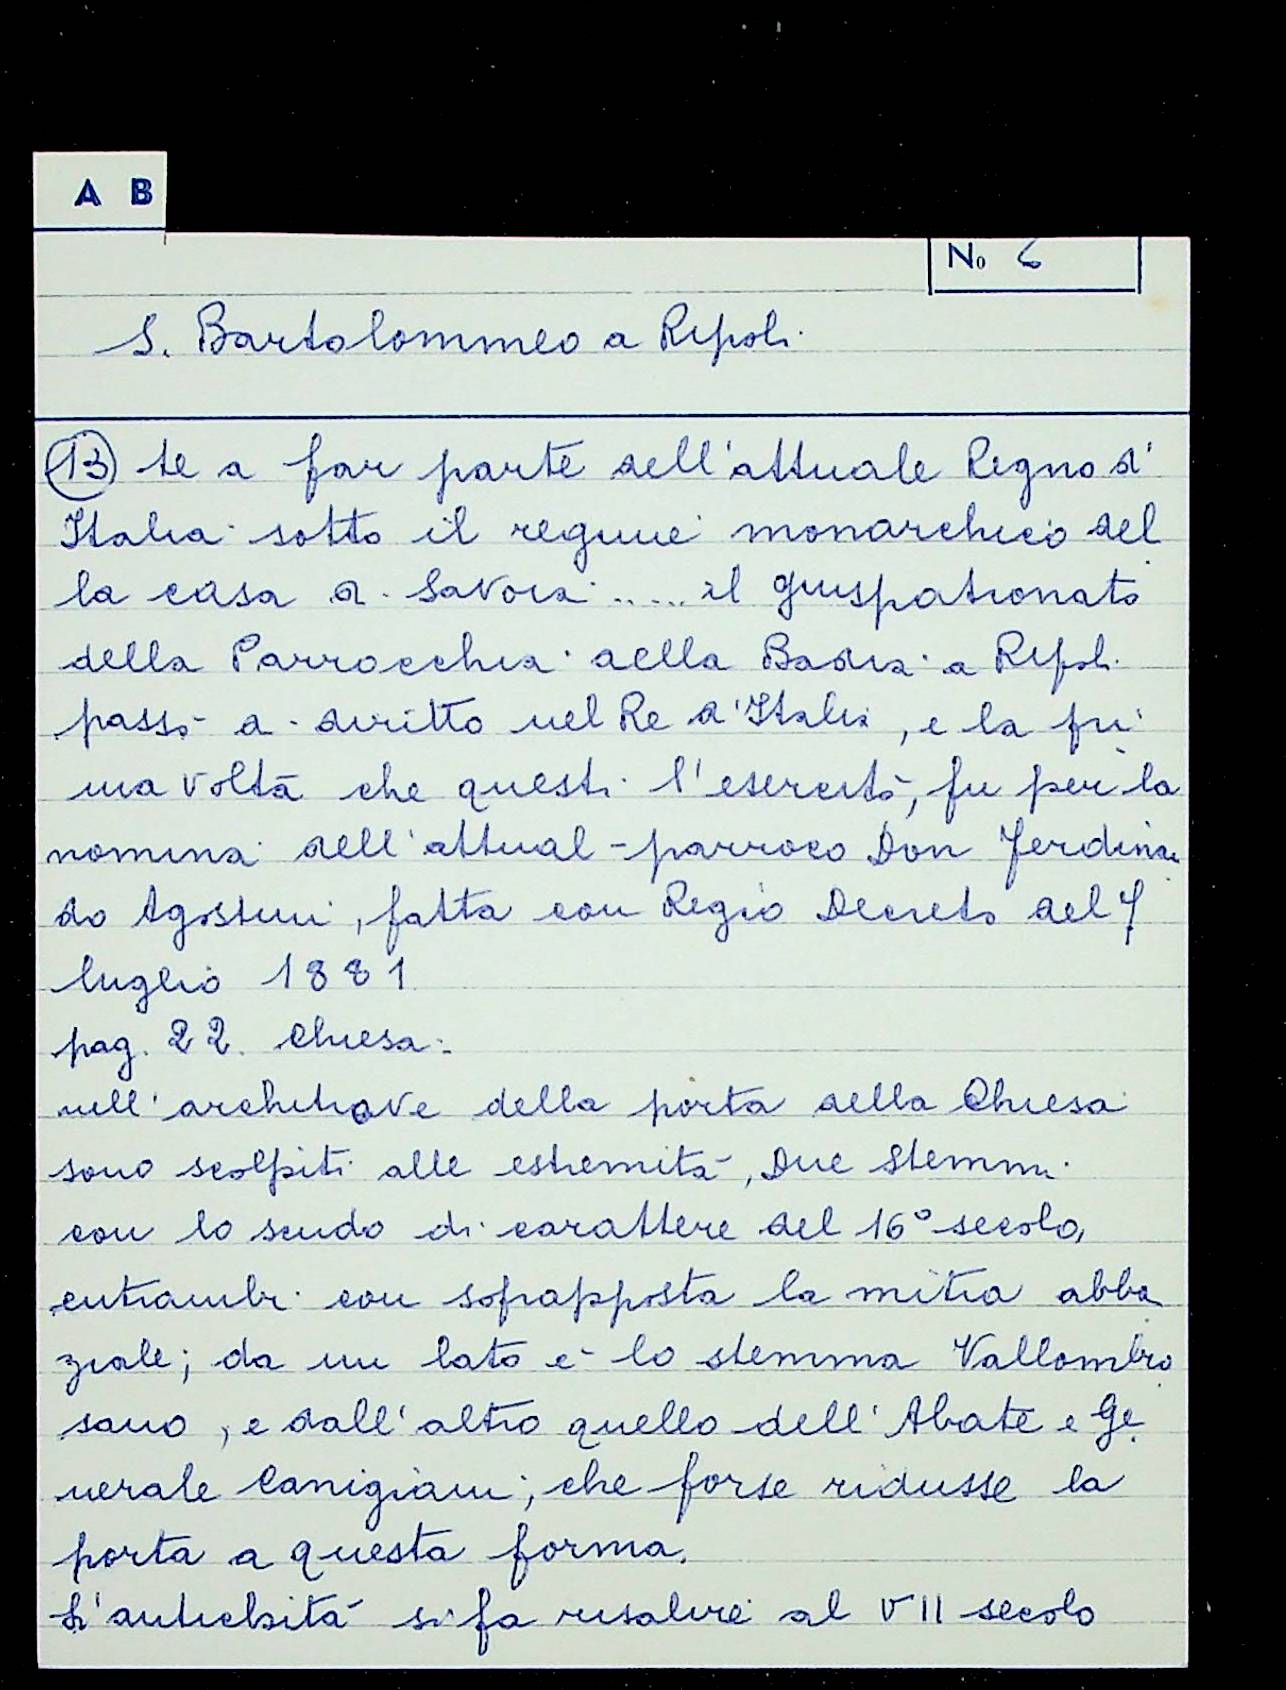 A B
No 6
S. Bartolommeo a Ripoli
13 te a far parte dell'attuale Regno d'
Italia sotto il regime monarchico del
la casa di Savoia ..... il giuspatronato
della Parrocchia della Badia a Ripoli
passò di diritto nel Re d'Italia, e la pri
ma volta che questi l'esercitò, fu per la
nomina dell'attual-parroco Don Ferdinan
do Agostini, fatta con Regio Decreto del 7
luglio 1881
pag. 22. Chiesa:
nell'architrave della porta della Chiesa
sono scolpiti alle estremità, Due Stemmi
con lo scudo di carattere del 16° secolo,
entrambi con soprapposta la mitra abba
ziale; da un lato è lo stemma Vallombro
sano, e dall'altro quello dell'Abate e Ge
nerale Canigiani, che forse ridusse la
porta a questa forma.
L'antichità si fa risalire al VII secolo